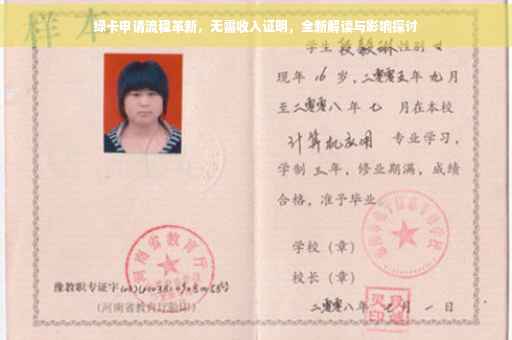 样本
绿卡申请流程革新，无需收入证明，全新解读与影响探讨
学生段毅琳性别
现年16岁，二零零五年九月
至二零零八年七月在本校
计算机应用 专业学习，
学制三年，修业期满，成绩
合格，准予毕业。
学校（章）
校长（章）
二零零八年七月一日
河南省教育厅
豫教职专证字
（河南省教育厅验印）